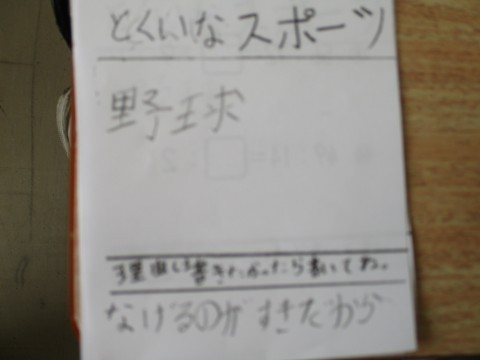 とくいなスポーツ
野球
理由も書きたかったら書いてね。
なげるのがすきだから